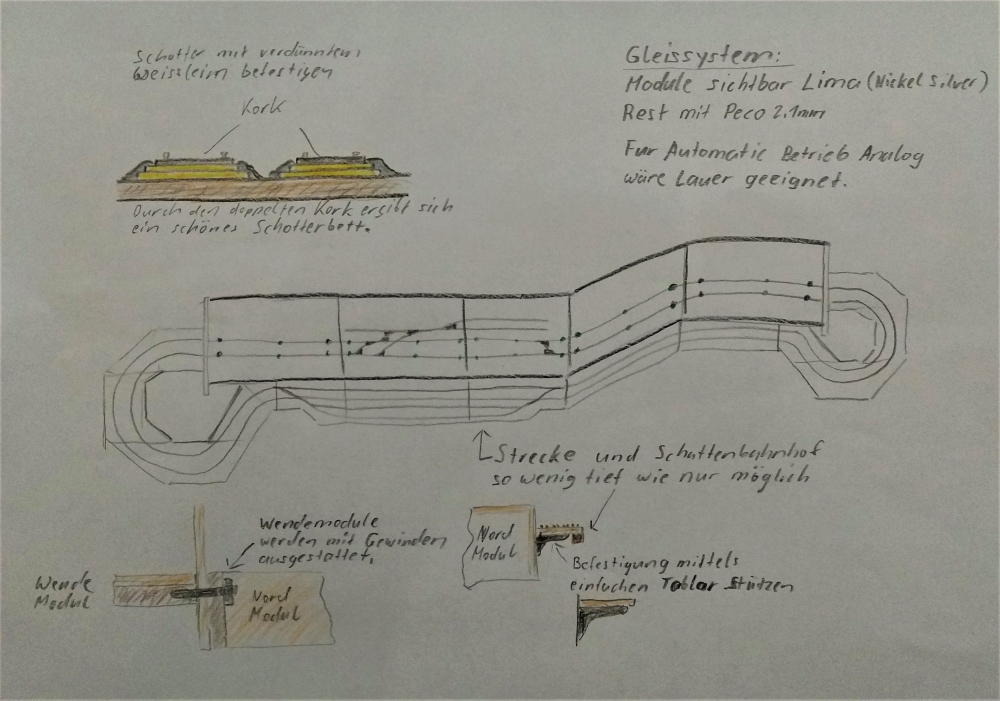 Schotter mit verdünntem
Weissleim befestigen
Kork
Durch den doppelten Kork ergibt sich
ein schönes Schotterbett.
Gleissystem:
Module sichtbar Lima (Nickel Silver)
Rest mit Peco 2.1mm
Fur Automatic Betrieb Analog
wäre Lauer geeignet.
Strecke und Schattenbahnhof
so wenig tief wie nur möglich
Wendemodule
werden mit Gewinden
ausgestattet.
Wende
Modul
Nord
Modul
Nord
Modul
Befestigung mittels
einfachen Tablar Stützen